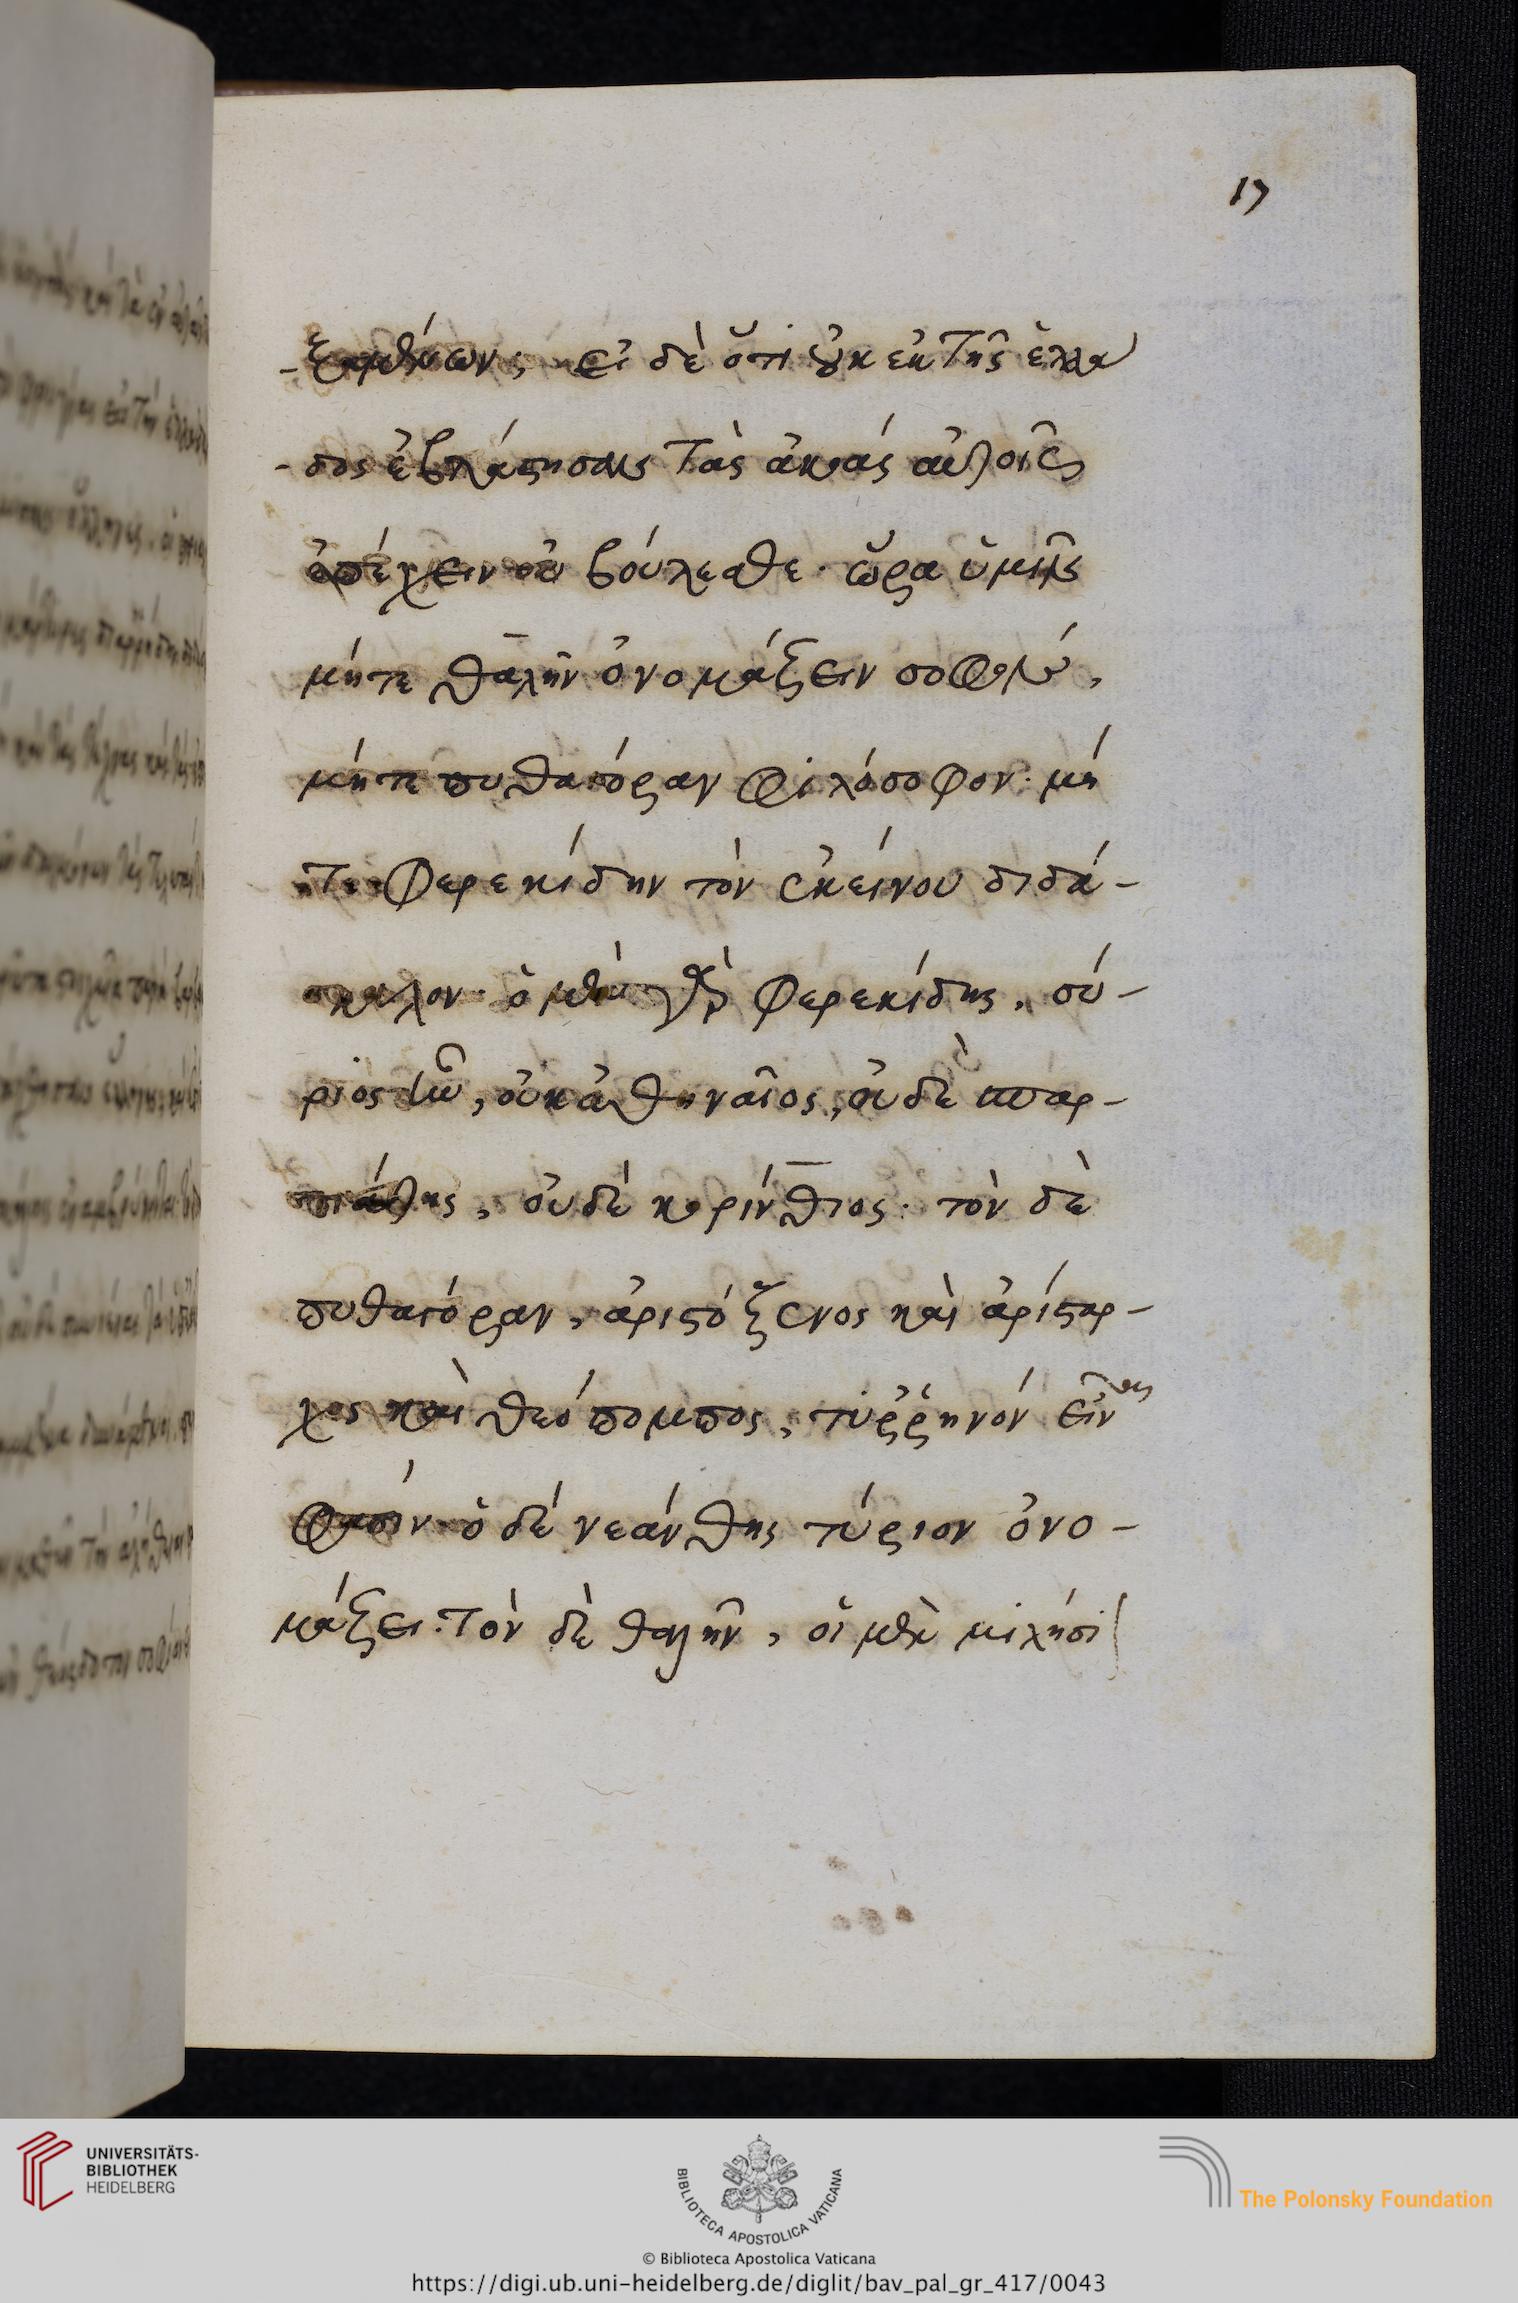 17
-ξαμένων; εἰ δὲ ὅτι οὐκ ἐκ τῆς ἑλλα
-δος ἐβλάστησαν τὰς ἀκοάς αὐτοῖς
ὑπέχειν οὐ βούλεσθε· ὥρα ὑμῖν
μήτε θαλῆν ὀνομάζειν σοφόν,
μήτε πυθαγόραν φιλόσοφον· μή
τε Φερεκίδην τὸν ἐκείνου διδά-
σκαλον· ὁ μὲν γὰρ Φερεκίδης, σύ-
ριός ἦν, οὐκ ἀθηναῖος, οὐδὲ σπαρ-
τιάτης, οὐδὲ κορίνθιος· τὸν δὲ
πυθαγόραν, ἀριστόξενος καὶ ἀρίσταρ-
χος καὶ θεόπομπος, τυῤῥηνόν εἶναι
φασίν· ὁ δέ νεάνθης τύριον ὀνο-
μάζει· τὸν δὲ θαλῆν, οἱ μὲν μιλήσι
UNIVERSITÄTS-
BIBLIOTHEK
HEIDELBERG
BIBLIOTECA APOSTOLICA VATICANA
The Polonsky Foundation
© Biblioteca Apostolica Vaticana
https://digi.ub.uni-heidelberg.de/diglit/bav_pal_gr_417/0043